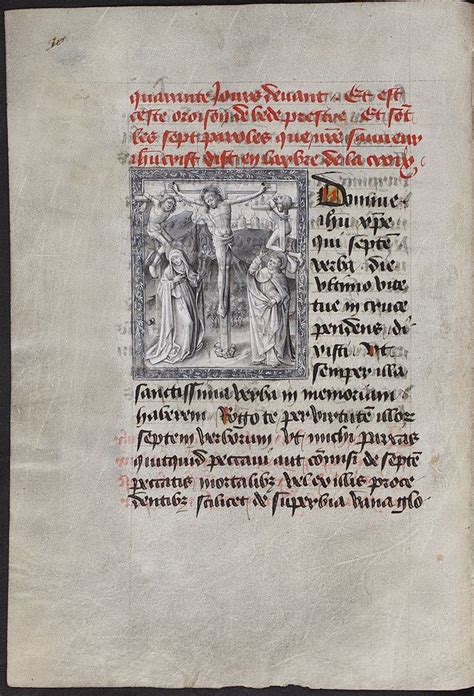 quarante jours devant. Et est
ceste oroison de bede prestre Et sont
les sept paroles que nre sauveur
ihucrist dist en larbre de la croix
Domine
ihu xpe
qui septem
verba die
ultimo vite
tue in cruce
pendens di
xisti Ut
semper illa
sanctissima verba in memoriam
haberem Rogo te per virtutem illor
septem verborum ut michi parcas
quitquid peccavi aut comisi de septe
peccatis mortalibz vel ex illis proce
dentibz scilicet de superbia vana glo